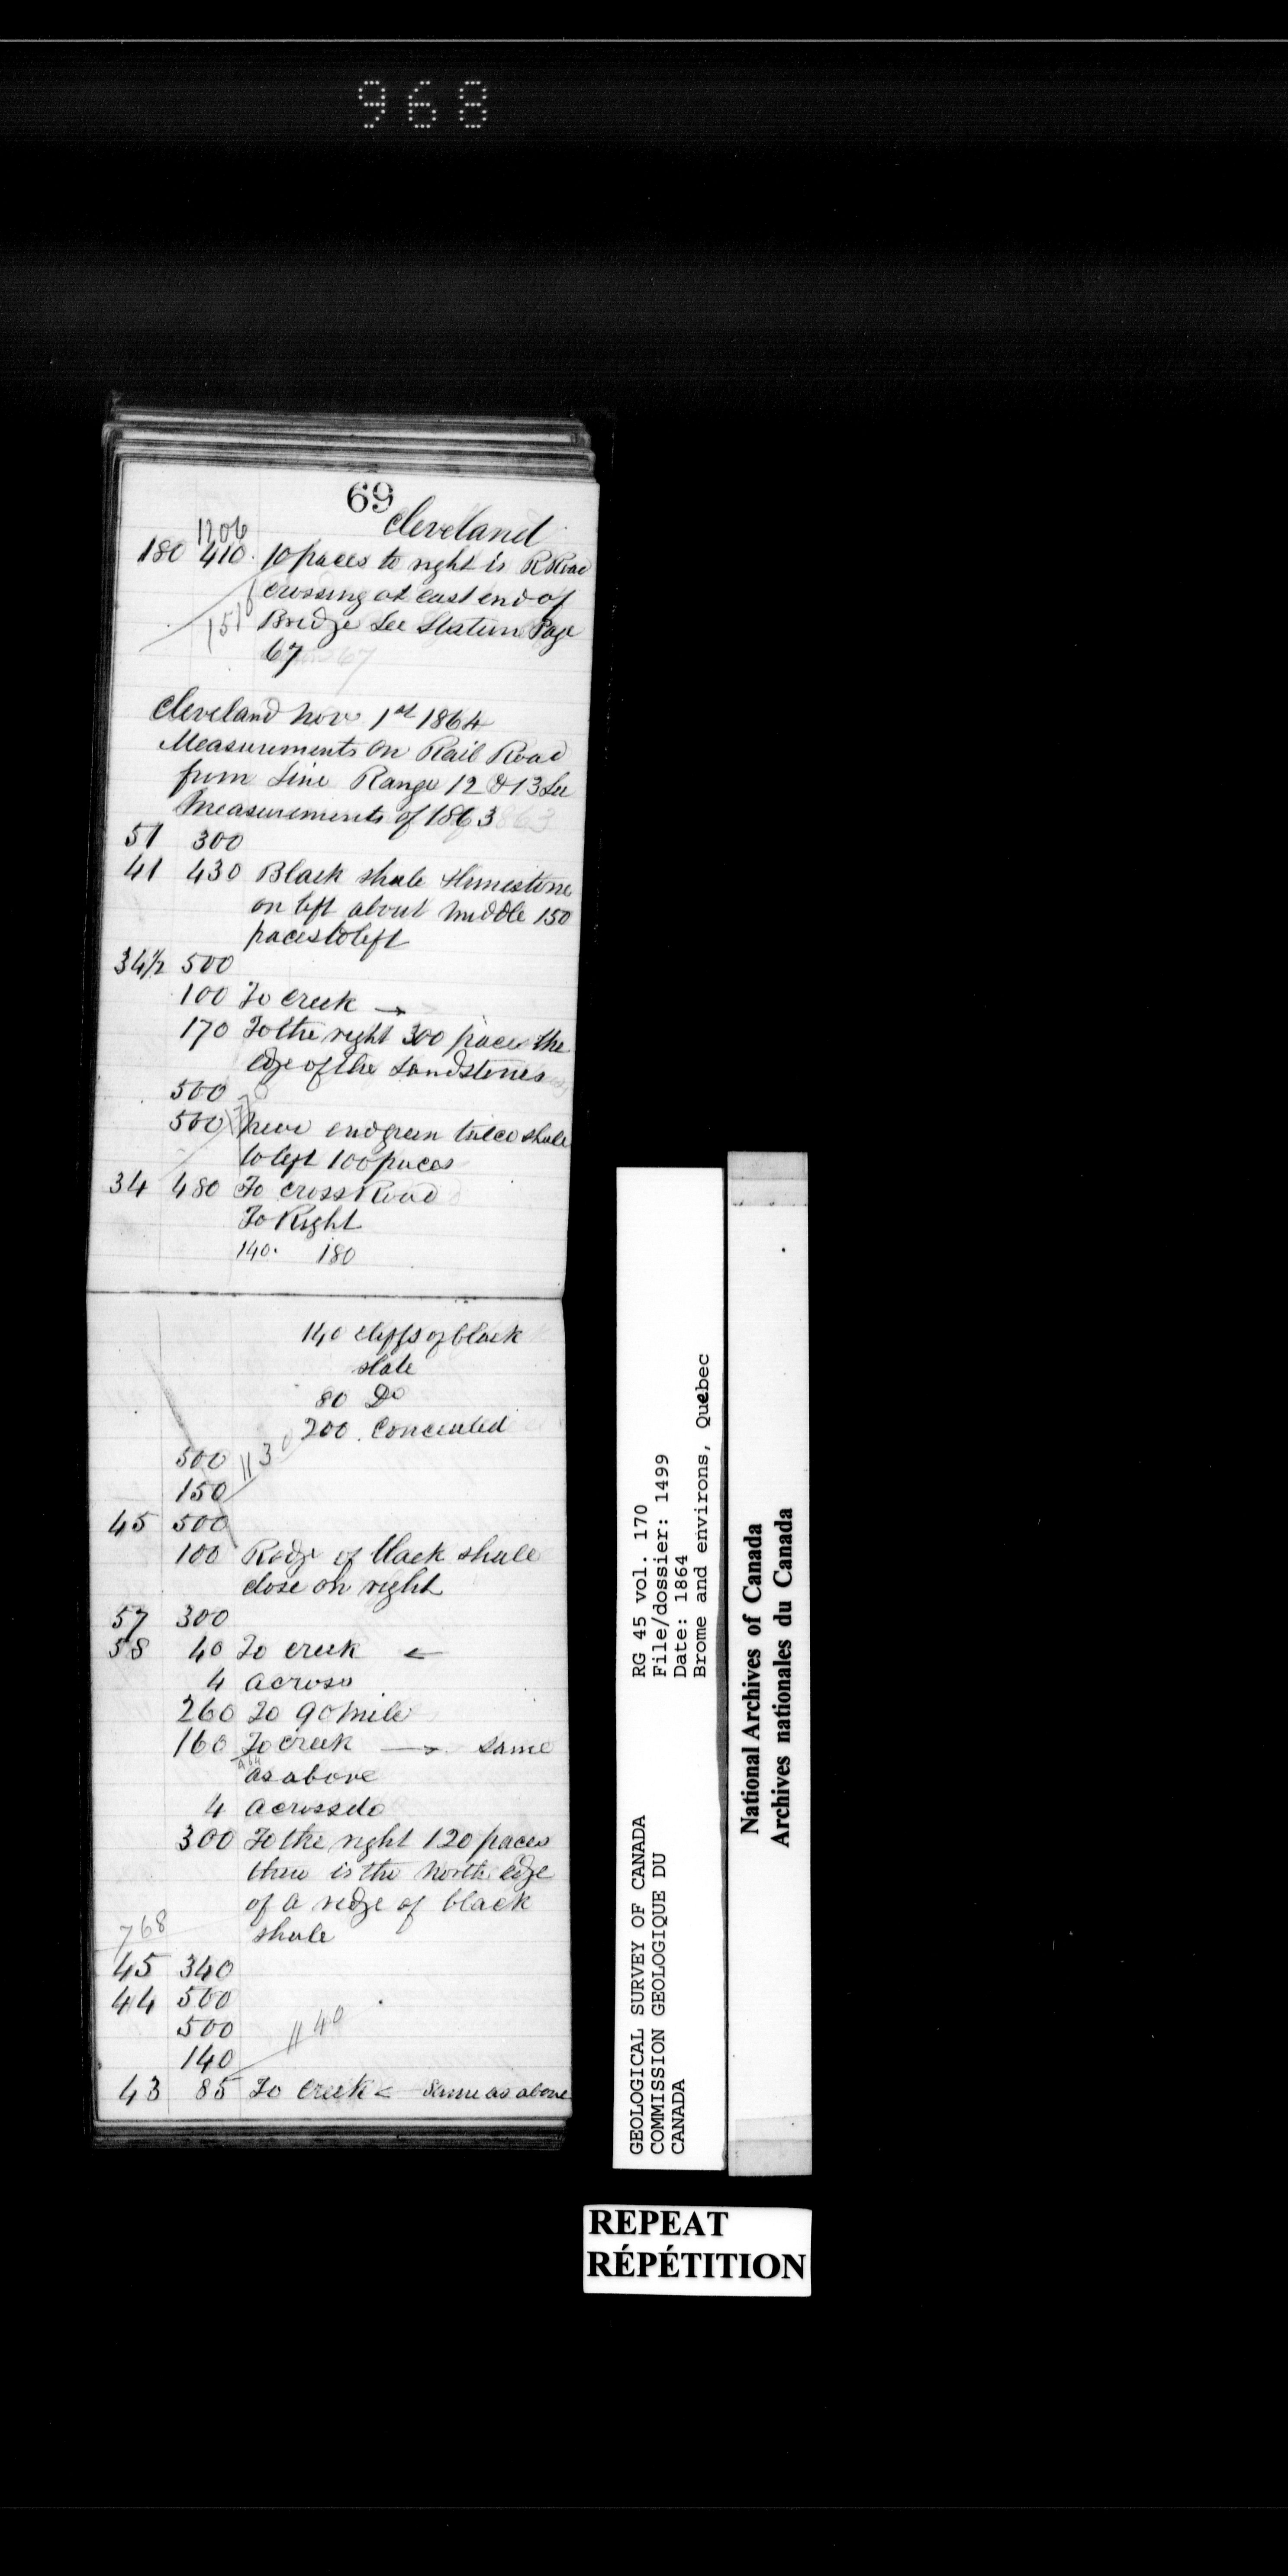 968
69
Cleveland
1206
180 410. 10 paces to right is R Road
crossing at east end of
Bridge See Station Page
67
Cleveland Nov 1st 1864
Measurements on Rail Road
from Line Range 12 & 13 See
Measurements of 1863
51 300
41 430 Black shale & limestone
on left about middle 150
paces to left
34 1/2 500
100 To creek →
170 To the right 300 paces the
edge of the Sandstones
500
500 near end green talco shale
to left 100 paces
34 480 To cross Road
To Right
140. 180
140 cliffs of black
slate
80 Do
200. Concealed
500 1130
150
45 500
100 Ridge of black shale
close on right
57 300
58 40 To creek ←
4 across
260 To 90 mile
160 To creek → same
as above
4 across do
300 To the right 120 paces
there is the north edge
of a ridge of black
shale
768
45 340
44 500
500
1140
140
43 85 To Creek ← Same as above
GEOLOGICAL SURVEY OF CANADA
COMMISSION GEOLOGIQUE DU
CANADA
RG 45 vol. 170
File/dossier: 1499
Date: 1864
Brome and environs, Quebec
National Archives of Canada
Archives nationales du Canada
REPEAT
RÉPÉTITION